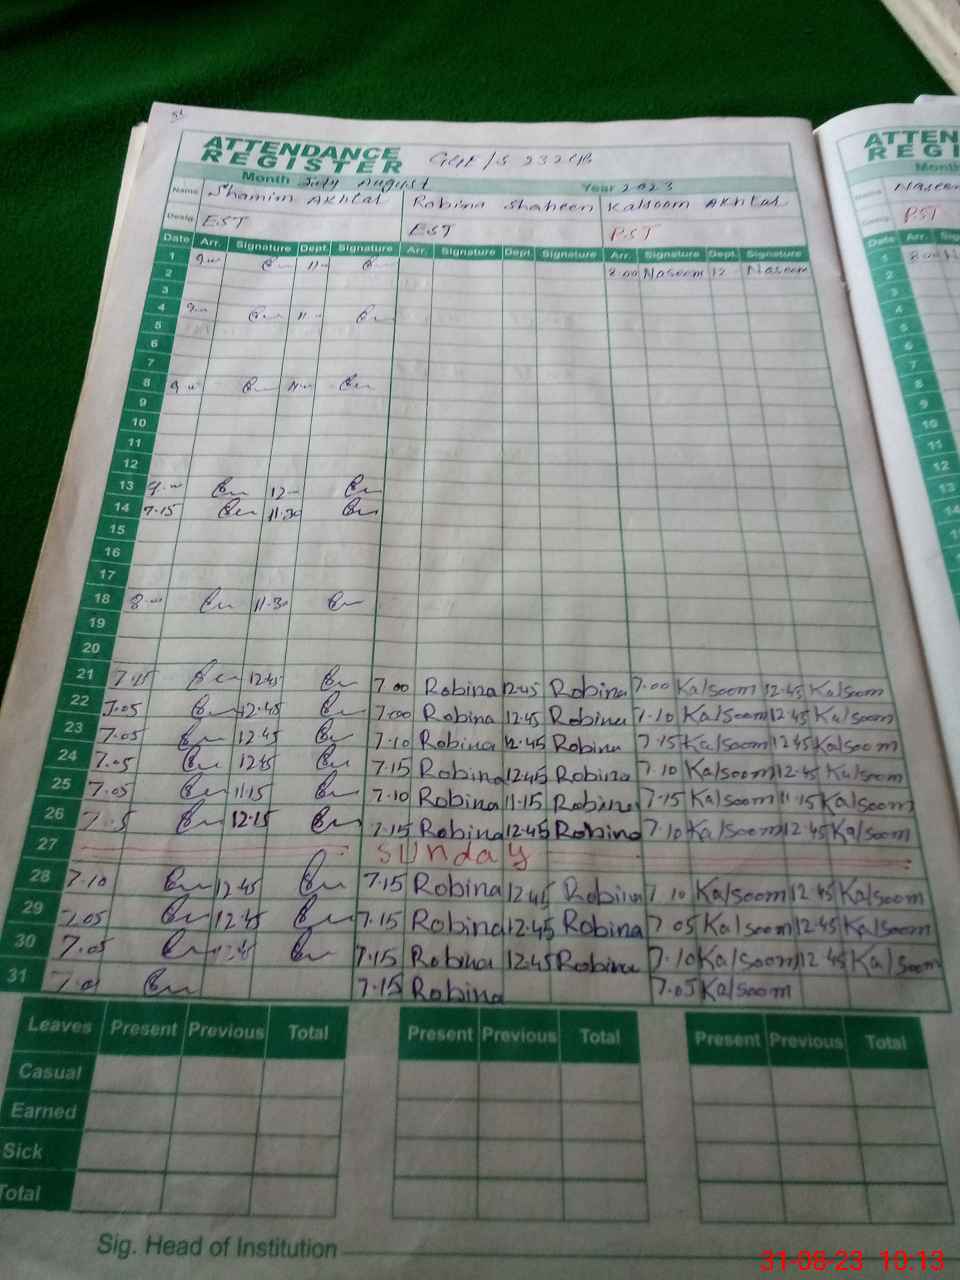 ATTENDANCE
REGISTER
Month July August Year 2023
Name Shamim Akhtar Robina Shaheen Kalsoom Akhtar
Desig. EST EST PST
Date Arr. Signature Dept. Signature Arr. Signature Dept. Signature Arr. Signature Dept. Signature
1
2 8.00 Naseem 12 Naseem
3
4
5
6
7
8
9
10
11
12
13 12
14 7.15 11.30
15
16
17
18 8 11.30
19
20
21 7.15 12.45 7.00 Robina 12.45 Robina 7.00 Kalsoom 12.45 Kalsoom
22 7.05 12.45 7.00 Robina 12.45 Robina 7.10 Kalsoom 12.45 Kalsoom
23 7.05 12.45 7.10 Robina 12.45 Robina 7.15 Kalsoom 12.45 Kalsoom
24 7.05 12.45 7.15 Robina 12.45 Robina 7.10 Kalsoom 12.45 Kalsoom
25 7.05 11.15 7.10 Robina 11.15 Robina 7.15 Kalsoom 11.15 Kalsoom
26 12.15 7.15 Robina 12.45 Robina 7.10 Kalsoom 12.45 Kalsoom
27 Sunday
28 7.10 12.45 7.15 Robina 12.45 Robina 7.10 Kalsoom 12.45 Kalsoom
29 7.05 12.45 7.15 Robina 12.45 Robina 7.05 Kalsoom 12.45 Kalsoom
30 7.05 12.45 7.15 Robina 12.45 Robina 7.10 Kalsoom 12.45 Kalsoom
31 7.15 Robina 7.05 Kalsoom
Leaves Present Previous Total Present Previous Total Present Previous Total
Casual
Earned
Sick
Total
Sig. Head of Institution
ATTEN
REGI
Month
Naseem
PST
Date Arr.
1 8.00
2
3
4
5
6
7
8
9
10
11
12
13
14
31-08-23 10:13